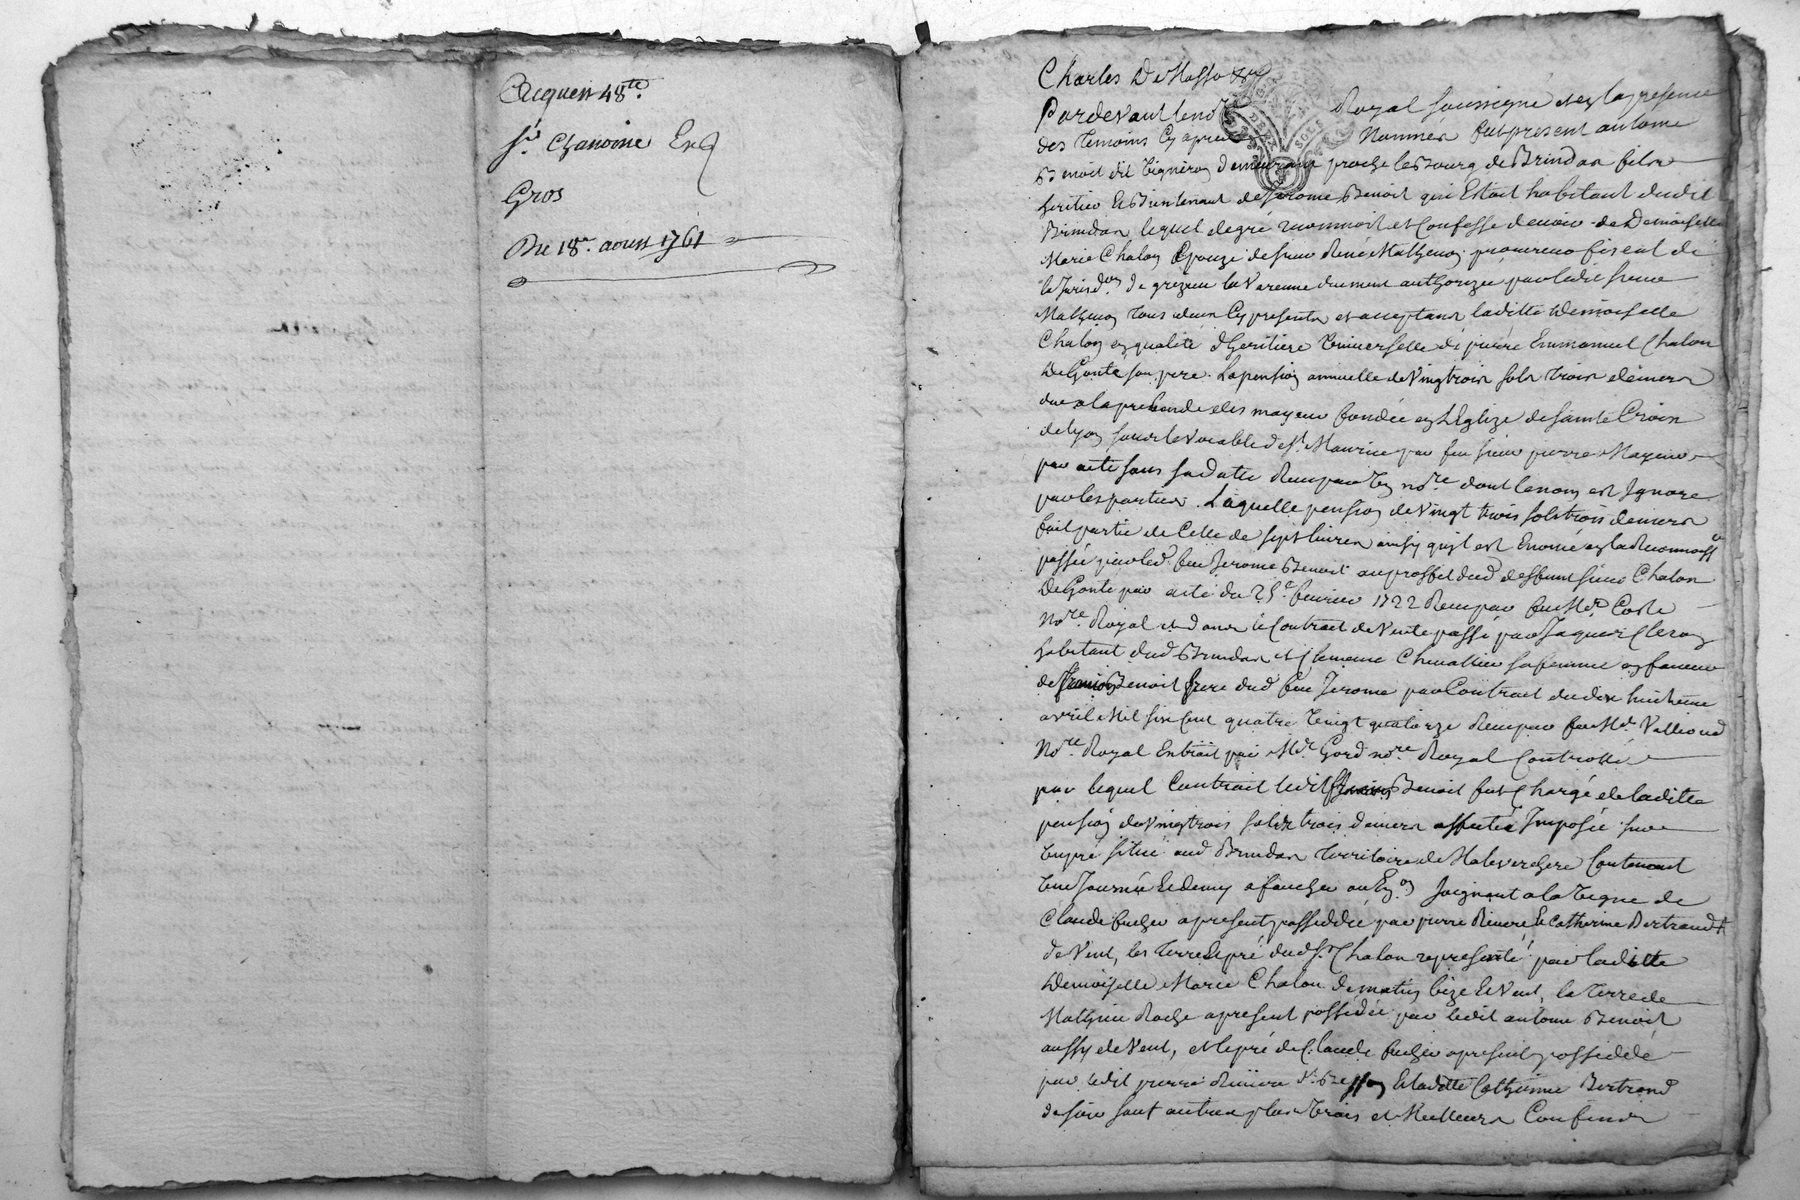 Acquest 48te.
Sr. Chanoine
Gros
Du 18e. aoust 1761
Charles De Masso
Pardevant le nore Royal soussigné et en la presence
des temoins cy apres Nommés fut present antoine
Benoit dit Vigneron demeurant proche le Bourg de Brindas fils
heritier et Bientenant de Jerome Benoit qui Estoit habitant dudit
Brindas lequel de gré reconnoit et Confesse devoir a Demoiselle
Marie Chalon Epouze de sieur René Mathevon procureur fiscal de
la Jurisdon de grezieu la Varenne duement authorizée par ledit sieur
Mathevon tous deux Cy presents et acceptant laditte Demoiselle
Chalon en qualité d'heritiere Universelle de Emmanuel Chalon
DeGonte son pere. La pension annuelle de Vingtrois sols trois deniers
due a la prebende des mayeu fondée en L'Eglize de Sainte Croix
de Lyon sous le Vocable de St. Maurice par feu sieur pierre Mayeu
par acte sans sa datte Reçu par Un nore dont le nom est Ignoré
par les parties. Laquelle pension de Vingt trois sols trois deniers
fait partie de Celle de sept livres ainsy qu'il est Enoncé en la Reconnoissce
passée par led. feu Jerome Benoit au proffit dud deffunt sieur Chalon
DeGonte par acte du 25e. fevrier 1722 Reçu par feu Me Coste
Nore. Royal et dans le Contrat de Vente passé par Jaques Cleron
habitant dud Brindas et Clemence Chevallier sa femme en faveur
de Benoit frere dud feu Jerome par Contrat du dix huitieme
avril Mil six Cent quatre Vingt quatorze Reçu par feu Me. Vallioud
Nore Royal Extrait par Me Gord nore Royal Controllé
par lequel Contrait ledit Benoit fut Chargé de laditte
pension de Vingtrois sols trois deniers affectée Imposée sur
Un pré situé aud Brindas territoire de Malevergere Contenant
Une Journée Et demy a faucher ou Enon Joignant a la Vigne de
Claude a present possedée par pierre Riviere Et Catherine Bertrand
de Vent, les terre Et pré dud Sr. Chalon representé par laditte
Demoiselle Marie Chalon de matin bize Et Vent, la terre de
Mathieu Roche a present possédée par ledit antoine Benoit
aussy de Vent, et le pré de Claude a present possedée
par ledit pierre Riviere dt Besson Et laditte Catherine Bertrand
de soir sauf autres plus Vrais et Meilleurs Confins